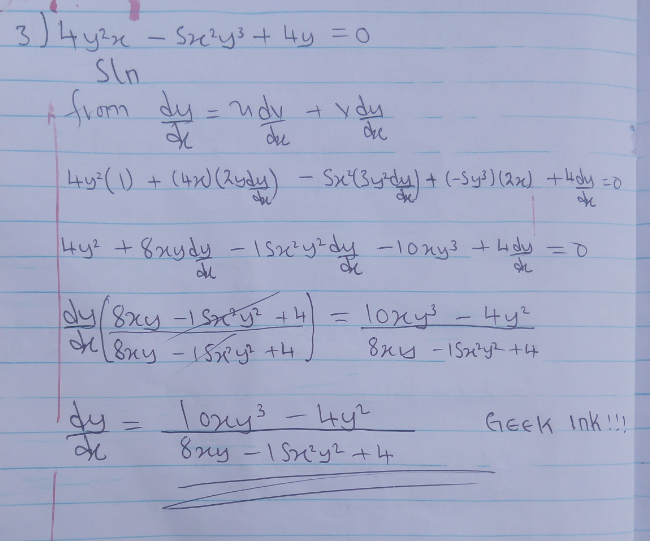 3) 4y²x - 5x²y³ + 4y = 0
Sln
from dy/dx = u dv/dx + v du/dx
4y²(1) + (4x)(2y dy/dx) - 5x²(3y² dy/dx) + (-5y³)(2x) + 4 dy/dx = 0
4y² + 8xy dy/dx - 15x²y² dy/dx - 10xy³ + 4 dy/dx = 0
dy/dx ((8xy - 15x²y² + 4)/(8xy - 15x²y² + 4)) = (10xy³ - 4y²)/(8xy - 15x²y² + 4)
dy/dx = (10xy³ - 4y²)/(8xy - 15x²y² + 4) GEEK INK!!!